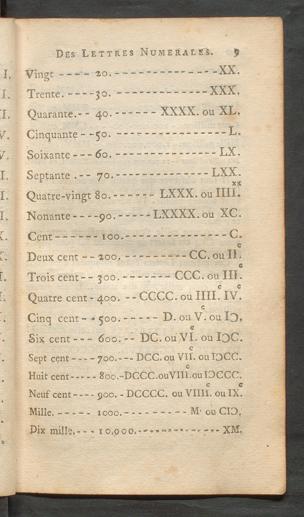 DES LETTRES NUMERALES. 9
Vingt ---- 20. -------------- XX.
Trente. ---- 30. ------------- XXX.
Quarante. -- 40. ------- XXXX. ou XL.
Cinquante -- 50. -------------- L.
Soixante --- 60. ------------- LX.
Septante . -- 70. ------------- LXX.
Quatre-vingt 80. ------- LXXX. ou IIIIˣˣ.
Nonante ---- 90. ------ LXXXX. ou XC.
Cent ------ 100. -------------- C.
Deux cent -- 200, --------- CC. ou IIᶜ.
Trois cent -- 300. -------- CCC. ou IIIᶜ.
Quatre cent - 400. -- CCCC. ou IIIIᶜ. IVᶜ.
Cinq cent - 500. ------ D. ou Vᶜ. ou IↃ,
Six cent --- 600. -- DC. ou VIᶜ. ou IↃC.
Sept cent ---- 700. --- DCC. ou VIIᶜ. ou IↃCC.
Huit cent ----- 800. - DCCC. ou VIIIᶜ. ou IↃCCC.
Neuf cent ---- 900. - DCCCC. ou VIIIIᶜ. ou IXᶜ.
Mille. ------ 1000. ----------- M. ou CIↃ,
Dix mille. --- 10,000. ------------- XM.